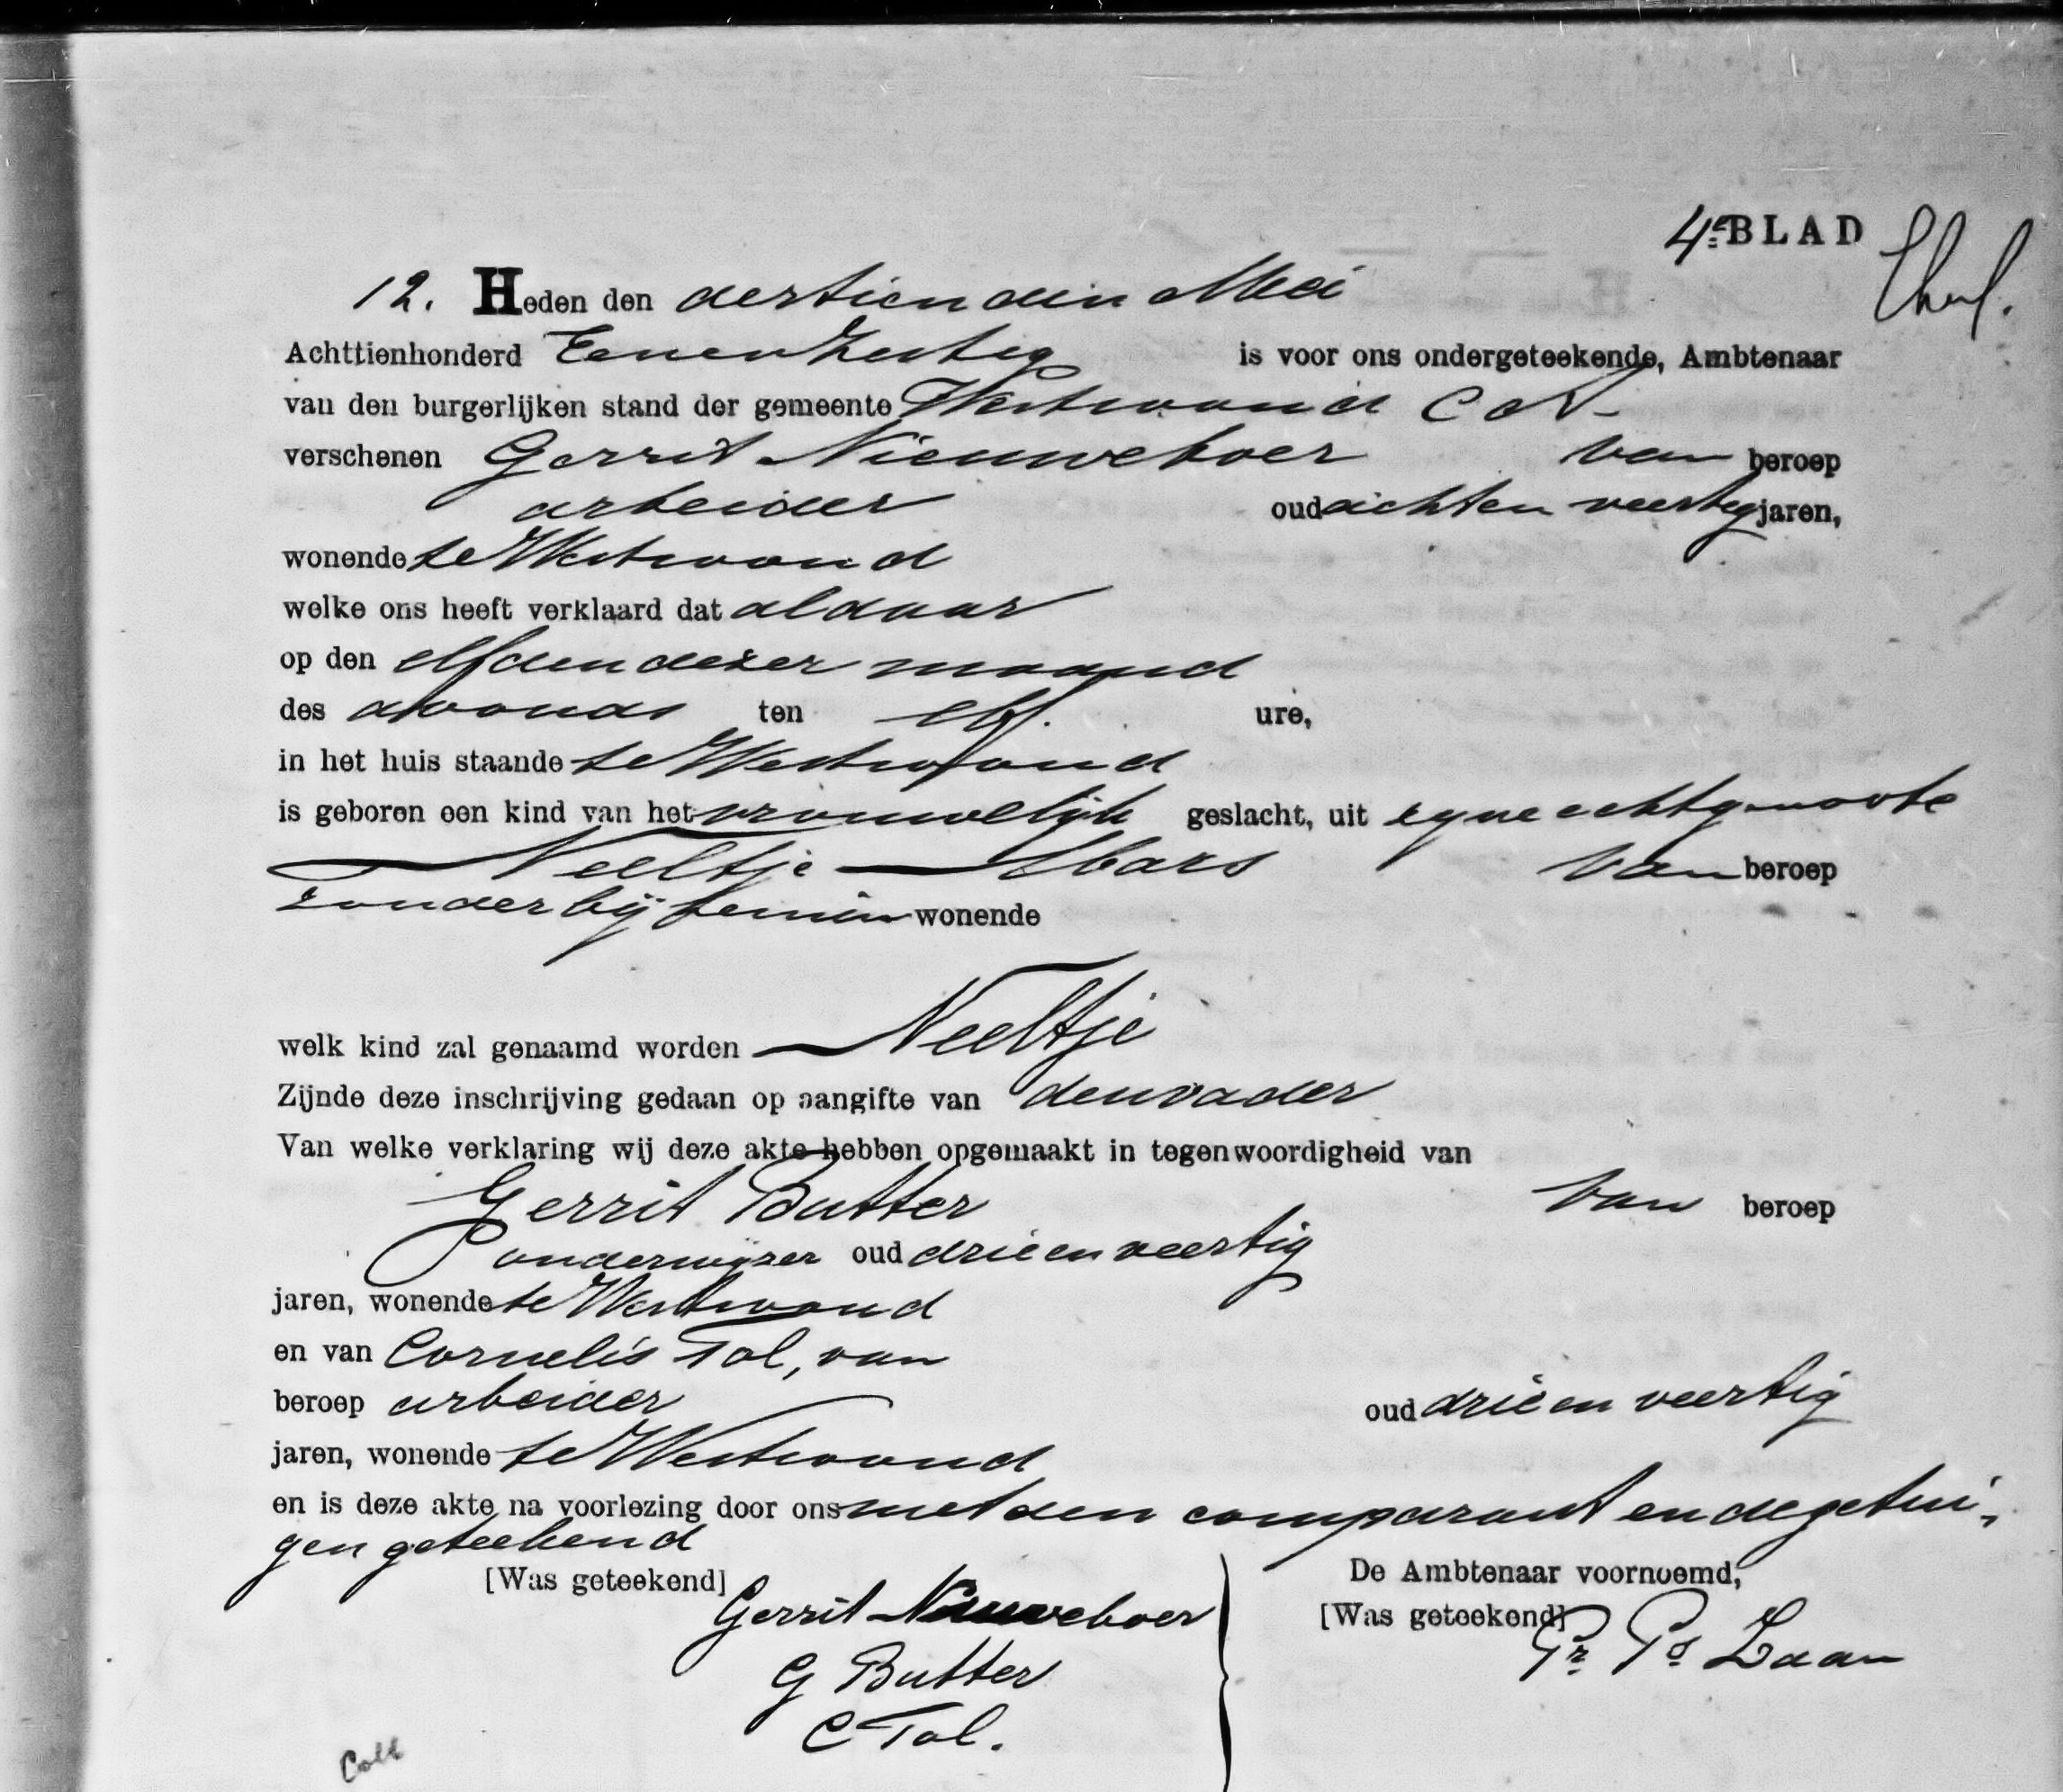 4e BLAD
12. Heden den dertienden Mei
Achttienhonderd Eenenzestig is voor ons ondergeteekende, Ambtenaar
van den burgerlijken stand der gemeente Westwoud C A
verschenen Gerrit Nieuweboer van beroep
arbeider oud achten veertig jaren,
wonende te Westwoud
welke ons heeft verklaard dat aldaar
op den elfden dezer maand
des avonds ten elf. ure,
in het huis staande te Westwoud
is geboren een kind van het vrouwelijk geslacht, uit zyne echtgenoote
Neeltje Mars van beroep
zonder bij hem in wonende
welk kind zal genaamd worden Neeltje
Zijnde deze inschrijving gedaan op aangifte van den vader
Van welke verklaring wij deze akte hebben opgemaakt in tegenwoordigheid van
Gerrit Butter van beroep
onderwijzer oud drieenveertig
jaren, wonende te Westwoud
en van Cornelis Tol, van
beroep arbeider oud drieen veertig
jaren, wonende te Westwoud
en is deze akte na voorlezing door ons met den comparant en de getui-
gen geteekend
[Was geteekend] De Ambtenaar voornoemd,
Gerrit Nieuweboer [Was geteekend]
G Butter Pr Pd Laan
C Tol.
Coll